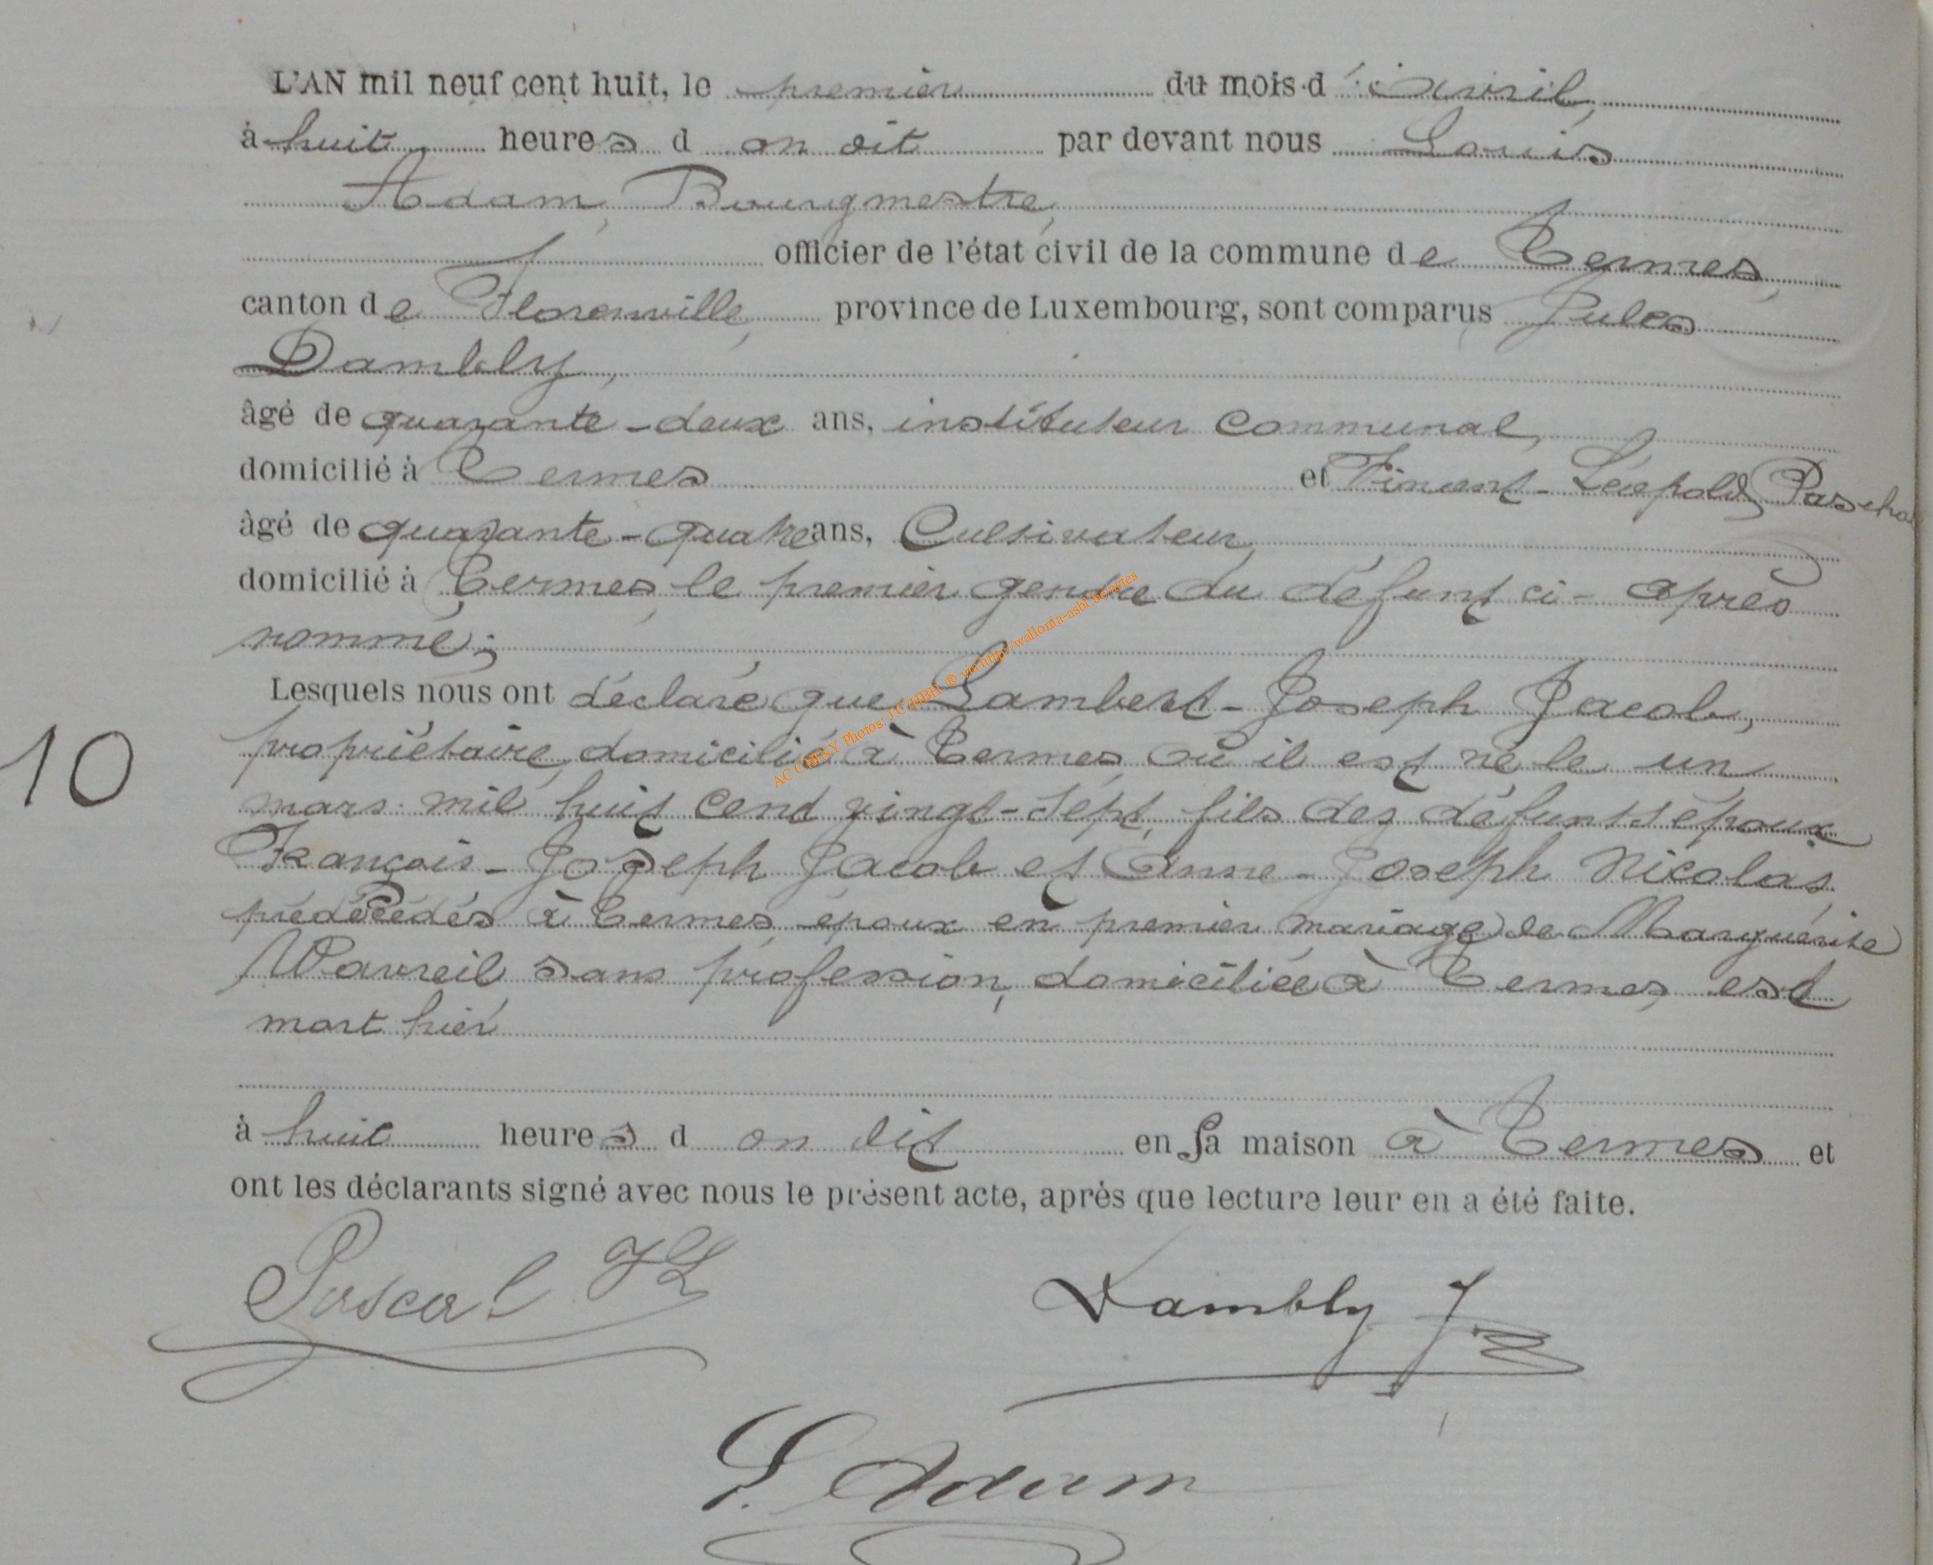 L'AN mil neuf cent huit, le premier du mois d'avril,
à huit heures d on dit par devant nous Louis
Adam, Bourgmestre,
officier de l'état civil de la commune de Termes,
canton de Florenville, province de Luxembourg, sont comparus Jules
Dambly,
âgé de quarante-deux ans, instituteur communal,
domicilié à Termes et Vincent-Léopold Paschal
âgé de quarante-quatre ans, Cultivateur,
domicilié à Termes, le premier gendre du défunt ci-après
nommé;
Lesquels nous ont déclaré que Lambert-Joseph Jacob,
propriétaire, domicilié à Termes, où il est né le un
mars mil huit cent vingt-sept, fils des défunts époux
François-Joseph Jacob et Anne-Joseph Nicolas,
prédécédés à Termes, époux en premier mariage de Marguérite
Wavreil sans profession, domiciliée à Termes, est
mort hier
10
à huit heures d on dit en sa maison à Termes et
ont les déclarants signé avec nous le présent acte, après que lecture leur en a été faite.
Pascal VL Dambly J
L. Adam